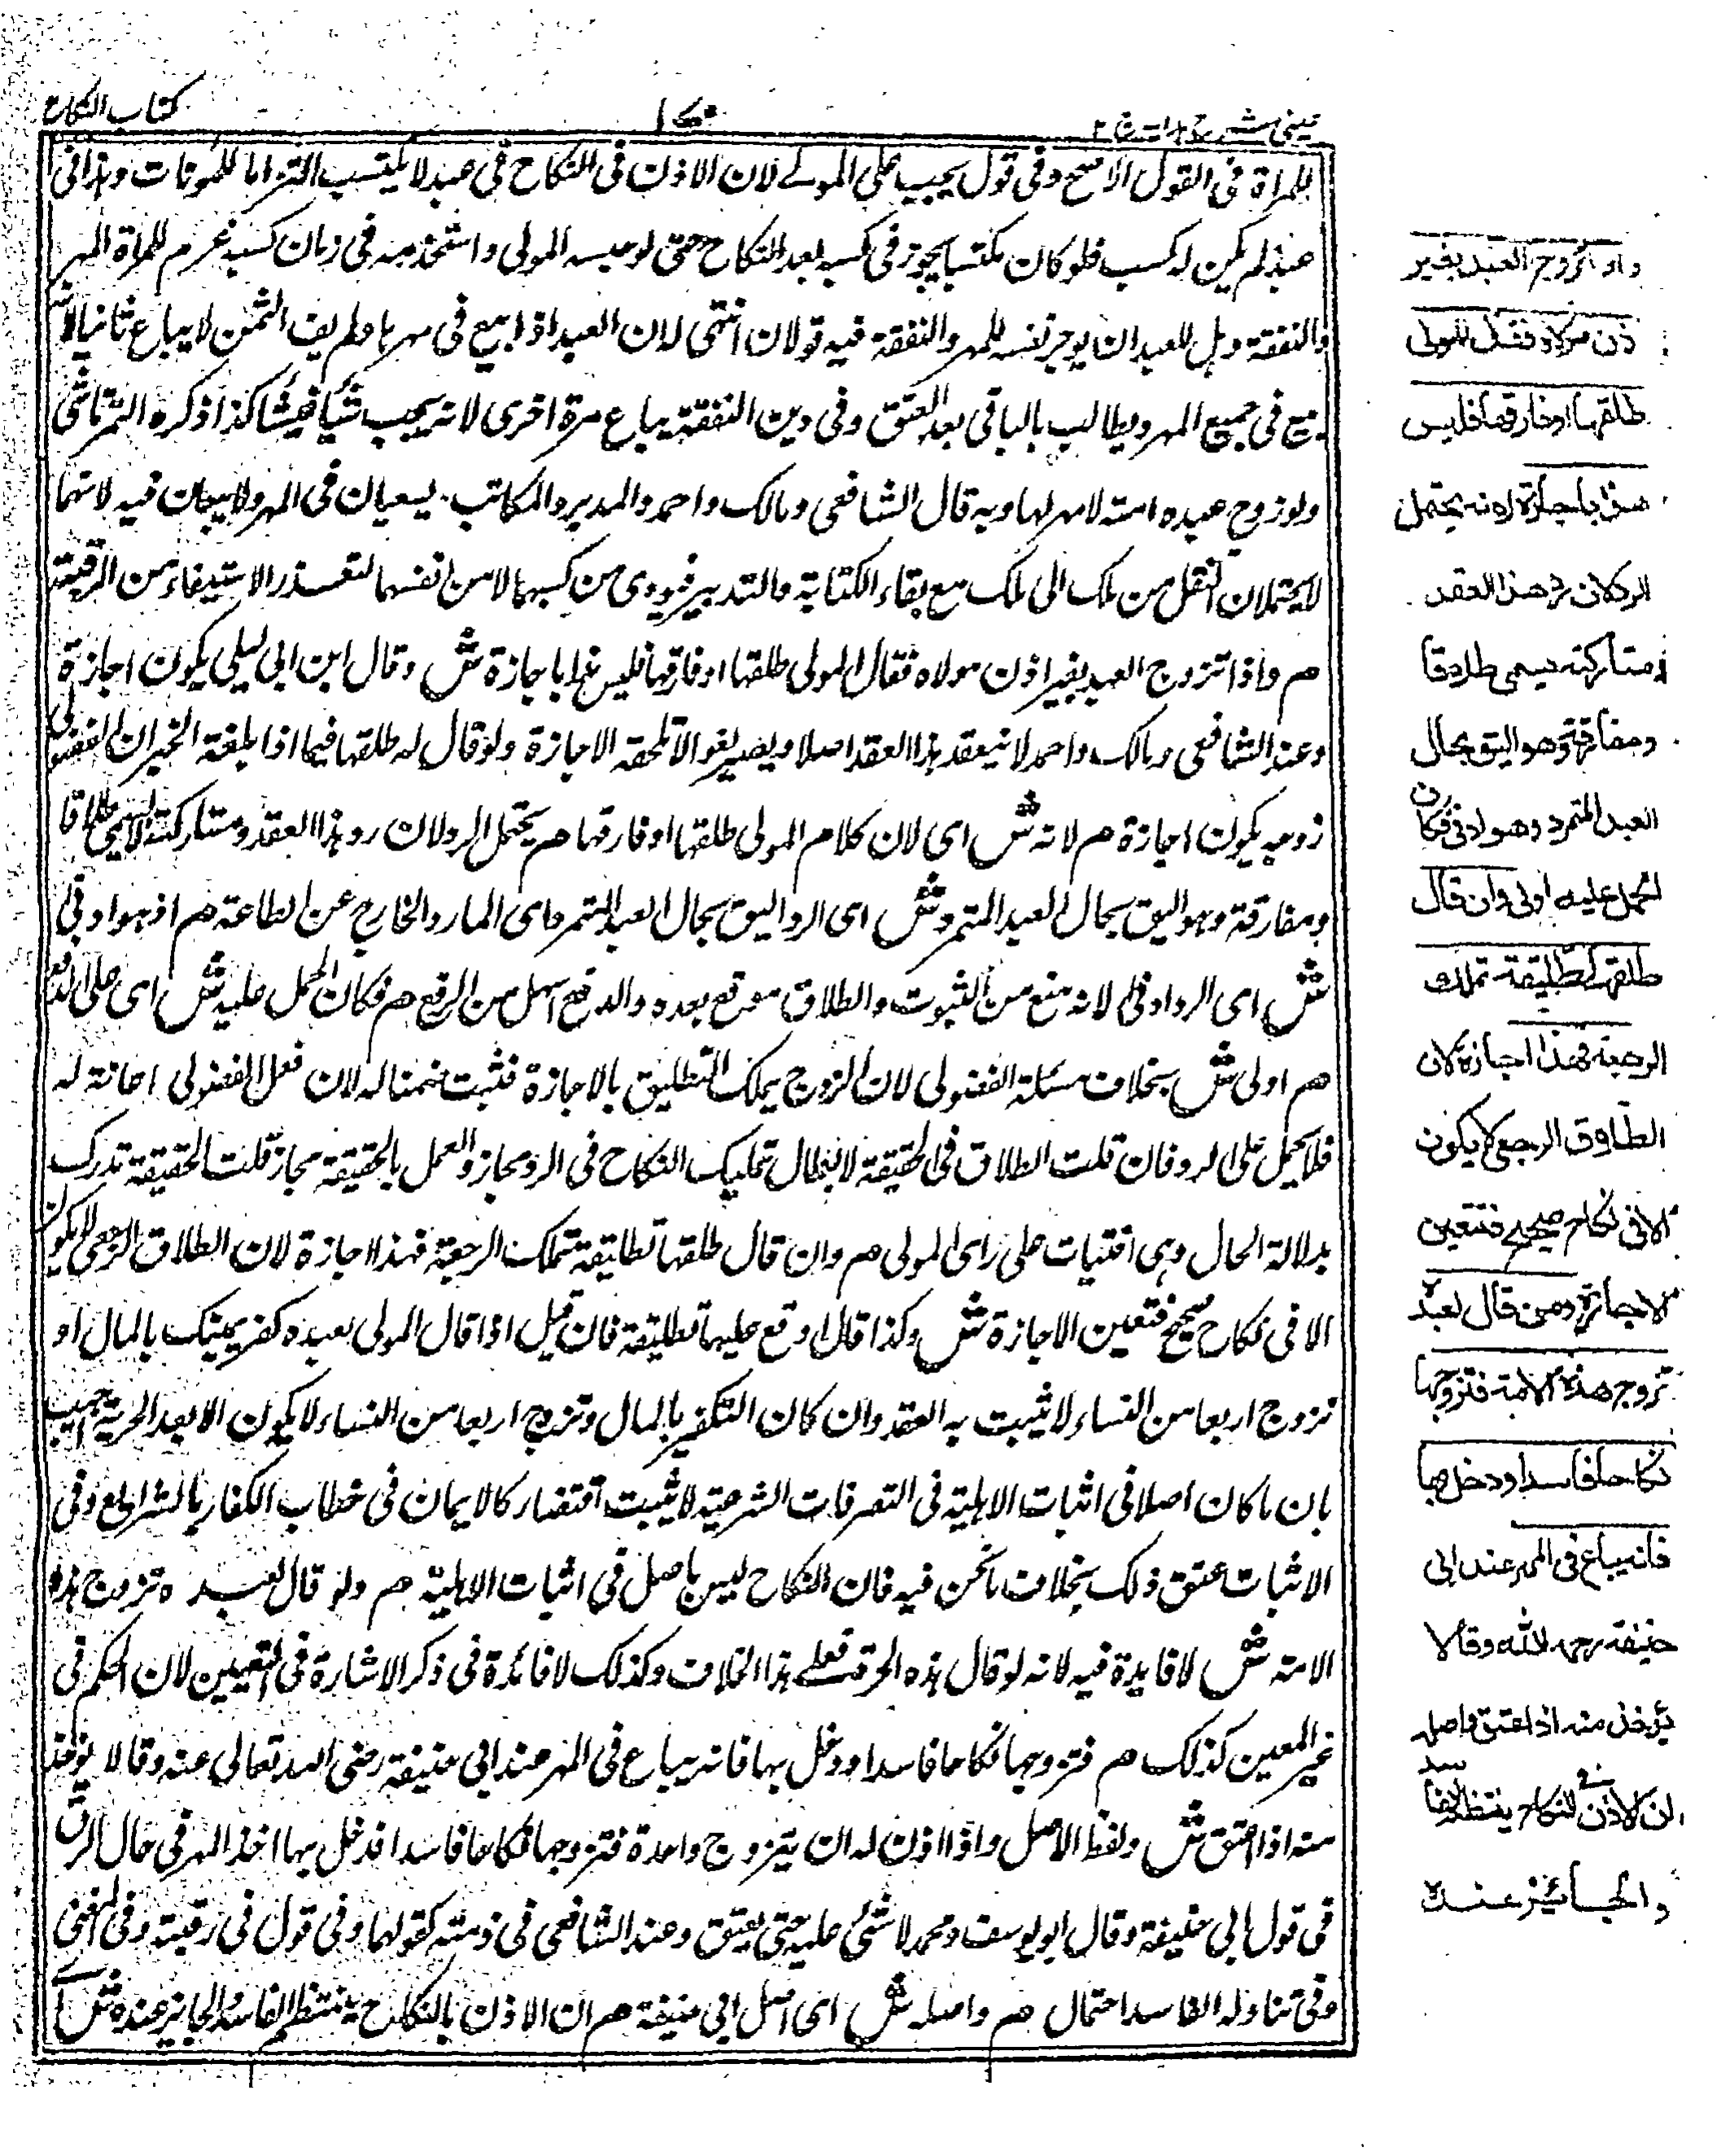 كتاب النكاح
للمرأة فى القول الاصح وفى قول يجب على المولے لان الاذن فى النكاح فى عبد لا يكتسب التزاما للمؤنات وهذا فى
عبد لم يكن له كسب فلو كان مكتسبا يجوز فى كسبه بعد النكاح حتى لو حبسه المولى واستخدمه فى زمان كسبه غرم للمرأة المهر
والنفقة وهل للعبد ان يوجر نفسه للمهر والنفقة فيه قولان انتهى لان العبد اذا بيع فى مهرها ولم يف الثمن لا يباع ثانيا لانه
بيع فى جميع المهر ويطالب بالباقى بعد العتق وفى دين النفقة يباع مرة اخرى لانه يجب شيئا فشيئا كذا ذكره التمرتاشى
ولو زوج عبده امته لا مهر لها وبه قال الشافعى ومالك واحمد والمدبر والمكاتب يسعيان فى المهر ولا يباعان فيه لانهما
لا يحتملان النقل من ملك الى ملك مع بقاء الكتابة والتدبير فيودى من كسبهما لا من انفسهما لتعذر الاستيفاء من الرقبة
م واذا تزوج العبد بغير اذن مولاه فقال المولى طلقها او فارقها فليس هذا باجازة ش وقال ابن ابى ليلى يكون اجازة
وعند الشافعى ومالك واحمد لا ينعقد هذا العقد اصلا ويصير لغوا لا تلحقه الاجازة ولو قال له طلقها فيما اذا بلغته الخبر ان الفضولى
زوجه يكون اجازة م لانه ش اى لان كلام المولى طلقها او فارقها م يحتمل الرد لان رد هذا العقد ومتاركته يسمى طلاقا
ومفارقة وهو اليق بحال العبد المتمرد ش اى الرد اليق بحال العبد المتمرد اى المارد الخارج عن الطاعة م اذ هو ادنى
ش اى الرد ادنى لانه منع من الثبوت والطلاق رفع بعده والدفع اسهل من الرفع م فكان الحمل عليه ش اى على الدفع
م اولى ش بخلاف مسئلة الفضولى لان الزوج يملك التطليق بالاجازة فثبت ضمنا له لان فعل الفضولى اعانة له
فلا يحمل على الرد فان قلت الطلاق فى الحقيقة لابطال تمليك النكاح فى الرد مجاز والعمل بالحقيقة مجاز قلت الحقيقة تدرك
بدلالة الحال وهى افتيات على راى المولى م وان قال طلقها تطليقة تملك الرجعة فهذا اجازة لان الطلاق الرجعى لا يكون
الا فى نكاح صحيح فتعين الاجازة ش وكذا قال اوقع عليها تطليقة فان قيل اذا قال المولى لعبده كفر يمينك بالمال او
تزوج اربعا من النساء لا يثبت به العقد وان كان التكفير بالمال وتزوج اربعا من النساء لا يكون الا بعد الحرية اجيب
بان ما كان اصلا فى اثبات الاهلية فى التصرفات الشرعية لا يثبت اقتضاء كالايمان فى خطاب الكفار بالشرايع وفى
الاثبات عتق ذلك بخلاف ما نحن فيه فان النكاح ليس باصل فى اثبات الاهلية م ولو قال لعبده تزوج هذه
الامة ش لا فايدة فيه لانه لو قال هذه الحرة فعلے هذا الخلاف وكذلك لا فائدة فى ذكر الاشارة فى التعيين لان الحكم فى
غير المعين كذلك م فتزوجها نكاحا فاسدا ودخل بها فانه يباع فى المهر عند ابى حنيفة رضى الله تعالى عنه وقالا يوخذ
منه اذا عتق ش ولفظ الاصل واذا اذن له ان يتزوج واحدة فتزوجها نكاحا فاسدا فدخل بها اخذ المهر فى حال الرق
فى قول ابى حنيفة وقال ابو يوسف ومحمد لا شئ عليه حتى يعتق وعند الشافعى فى ذمته كقولهما وفى قول فى رقبته وفى المغنى
وفى تناوله الفاسد احتمال م واصله ش اى اصل ابى حنيفة م ان الاذن بالنكاح ينتظم الفاسد والجايز عنده ش اے
واذا تزوج العبد بغير
اذن مولاه فقال المولى
طلقها او فارقها فليس
هذا باجازة لانه يحتمل
الرد لان رد هذا العقد
ومتاركته يسمى طلاقا
ومفارقة وهو اليق بحال
العبد المتمرد وهو ادنى فكان
الحمل عليه اولى وان قال
طلقها تطليقة تملك
الرجعة فهذا اجازة لان
الطلاق الرجعى لا يكون
الا فى نكاح صحيح فتتعين
الاجازة ومن قال لعبده
تزوج هذه الامة فتزوجها
نكاحا فاسدا ودخل بها
فانه يباع فى المهر عند ابى
حنيفة رحمه الله وقالا
يؤخذ منه اذا عتق واصله
ان الاذن فى النكاح ينتظم الفاسد
والجائز عنده